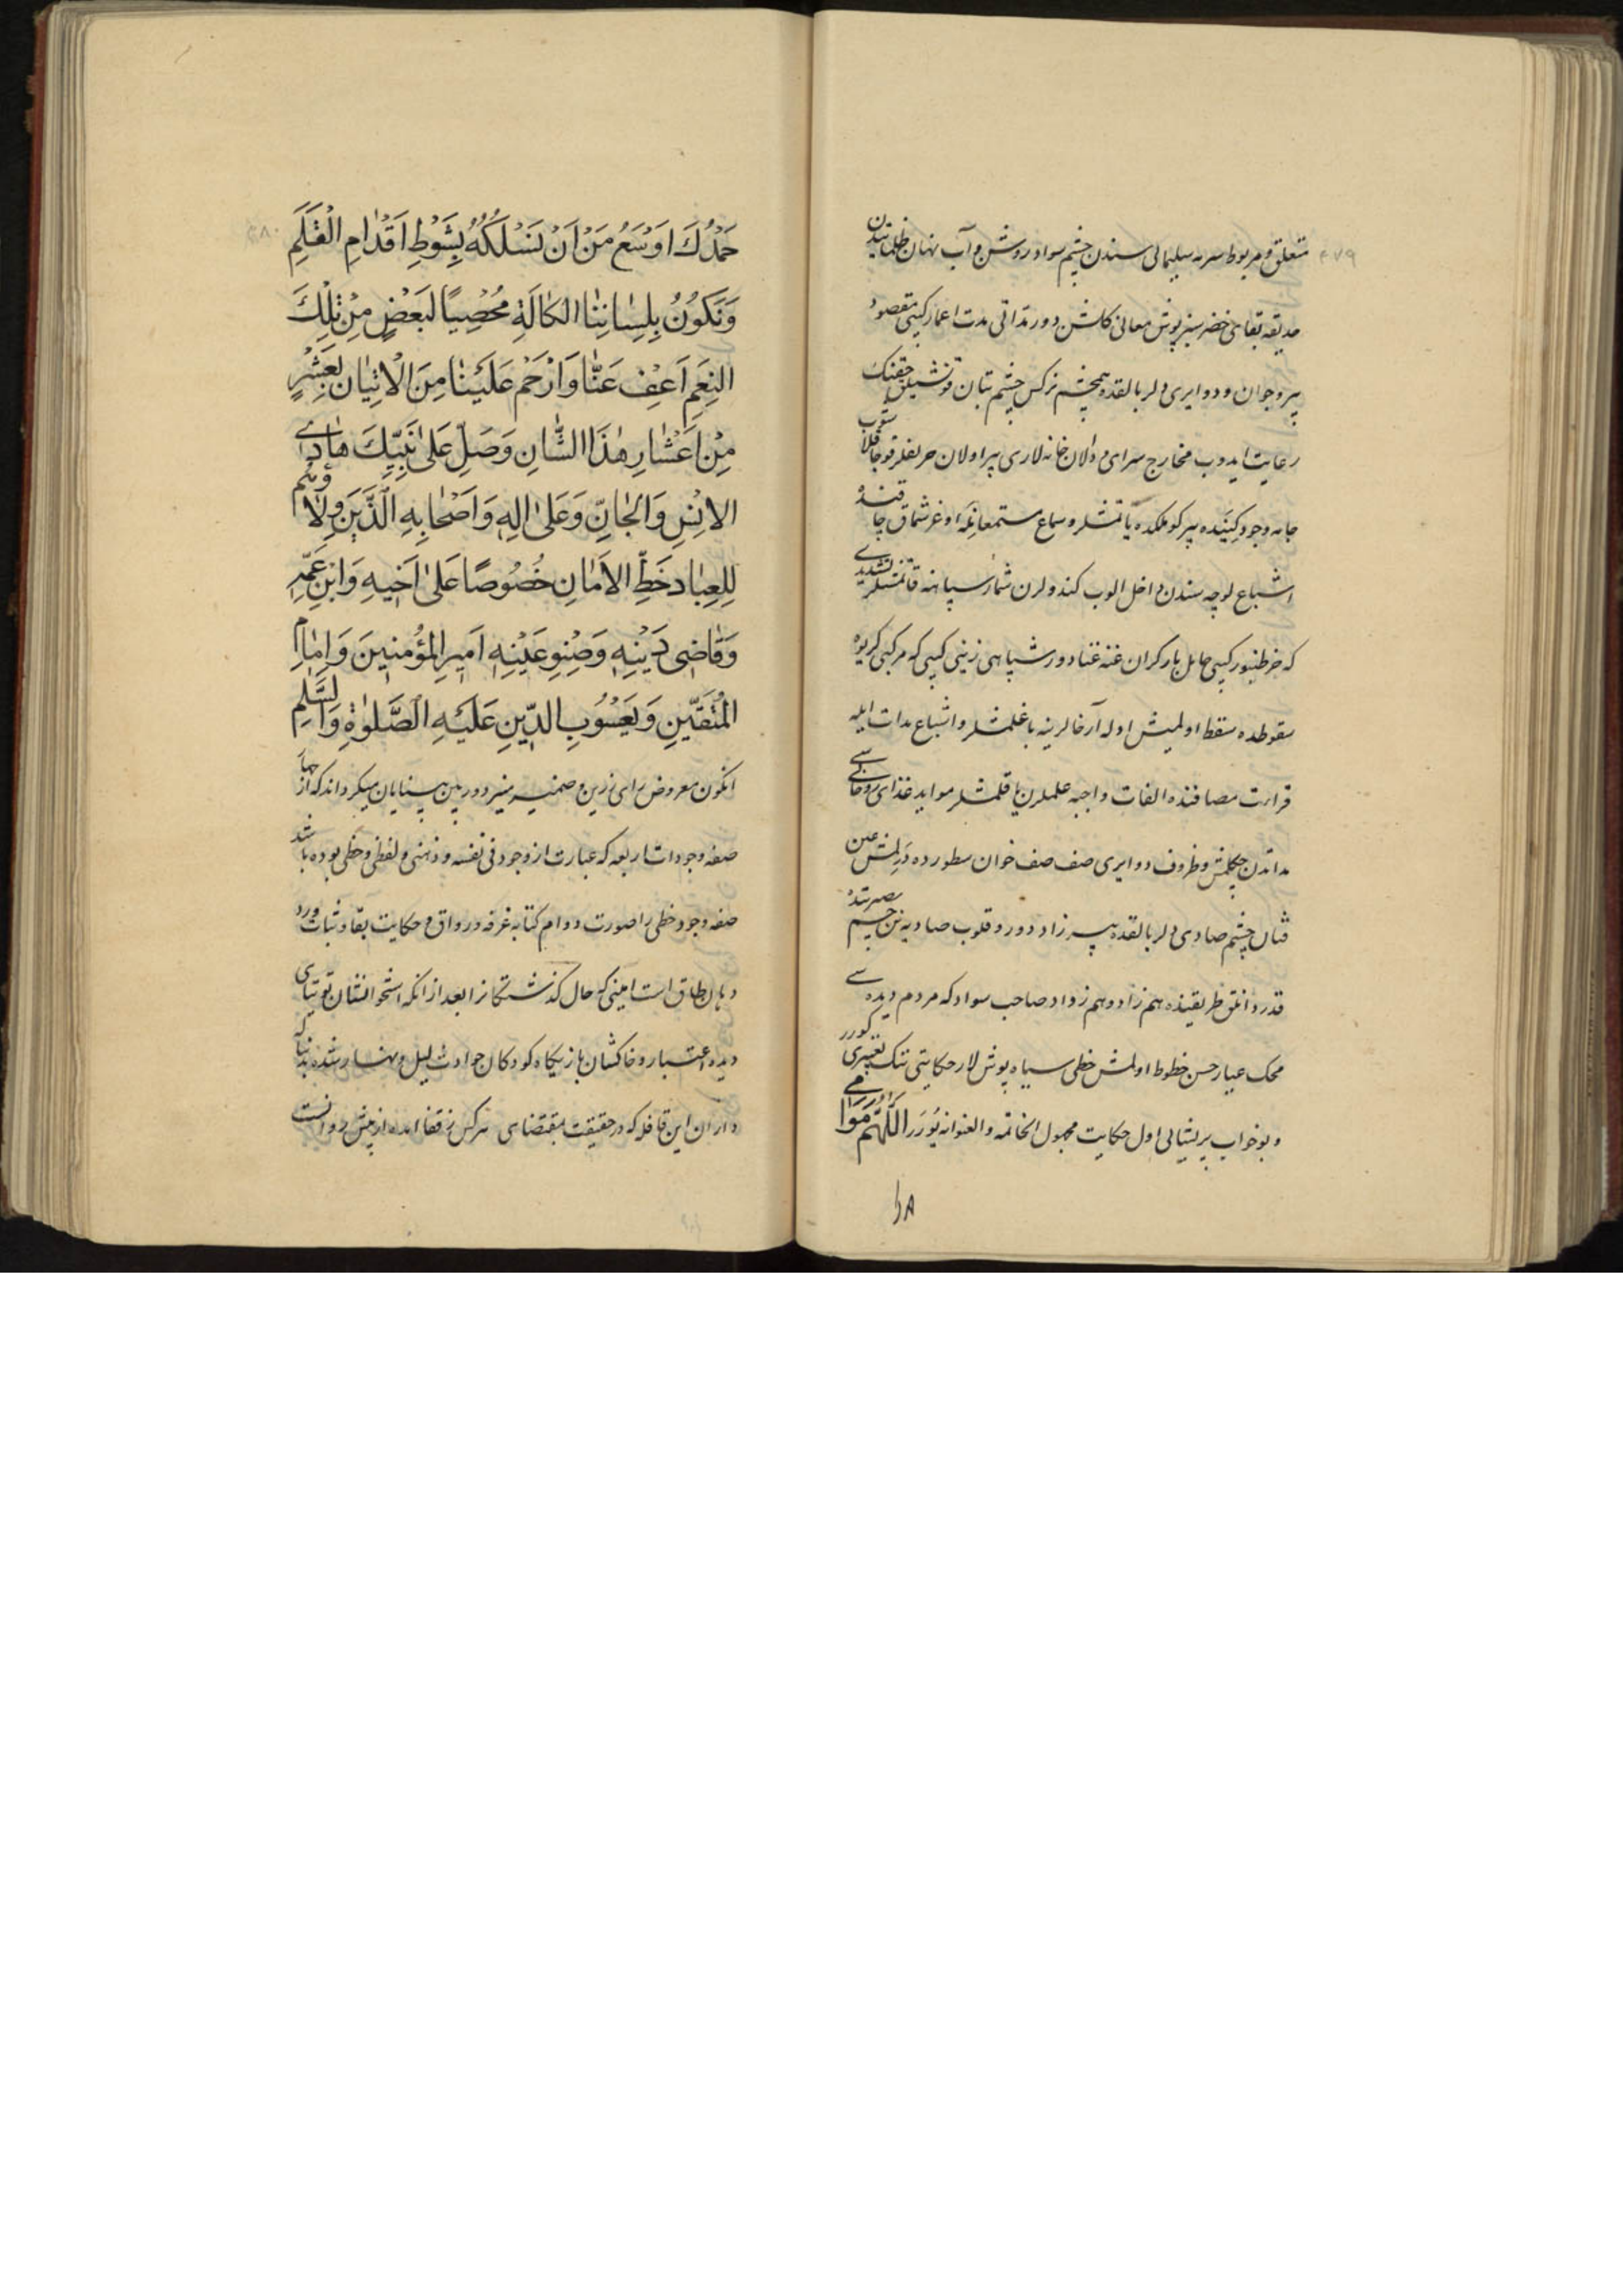 ۲۷۹
متعلق و مربوط سرمه سلیمانی سندن چشم سواد روشن و آب نهان ظلماتیدن
حدیقه بقای خضر سبزپوش معانی کلشن دور تداتی مدت اعمار کیبی مقصود
پیر و جوان و دوایری دلربالقده همچشم نرکس چشم بتان قونشیلق حقنک
رعایت ایدوب مخارج سرای دالان خانه لاری پیر اولان حرفلر قوجاقلاشوب
جامه وجود کینده پیر کوملکده یاتمشلر و سماع مستمعانکه اوغرشماق جاقنده
اشباع لوچه سندن داخل الوب کندولرن شمار سپاهنه قاتمشلر تشدیدی
که خر طنبور کیبی حامل بار کران غنه غنادور شپاهی زینی کیبی که مرکبی کریوه
سقوطده سقط اولمیش اوله آرخالرینه باغلمشلر و اشباع مدات ایله
قرائت مصافنده الفات واجبه علملرن یا قلمشلر مواید غذای روحانی سی
مداتدن چکلمش و ظروف دوایری صف صف خوان سطورده دزلمش عین
فتان چشم صادی دلربالقده پیر زاد دور و قلوب صادیه نن چشم بصیرتنده
قدردانلق طریقنده هم زاد و هم زداد صاحب سواد که مردم دیده سی
محک عیار حسن خطوط اولمش خطی سیاه پوش لار حکایتی تنک تغییری کورر
و بو خواب پریشانی اول حکایت مجهول الخاتمه و العنوانه یورر اللهم
حَمْدُكَ اَوْسَعُ مَنْ اَنْ نَسْلُكَهُ بِشَوْطِ اَقْدَامِ الْقَلَمِ
وَنَكُونُ بِلِسَانِنَا الكَالَةِ مُحْصِيًا لَبَعْضٍ مِنْ تِلْكَ
النِعَمِ اَعْفِ عَنَّا وَارْحَمْ عَلَيْنَا مِنَ الْاِتْيَانِ بِعَشْرٍ
مِنْ اَعْشَارِ هٰذَا الشَّانِ وَصَلِّ عَلَىٰ نَبِيِّكَ هَادِى
الاِنْسِ وَالجَانِّ وَعَلَىٰ اٰلِهِ وَاَصْحَابِهِ الَّذَيَنَ وِلَاؤُهُم
لِلعِبَادِ خَطِّ الاَمَانِ خُصُوصًا عَلَىٰ اَخِيهِ وَابْنِ عَمِّهِ
وَقَاضِى دَيْنِهِ وَصِنْوِ عَيْنِهِ اَمِيرِ المُؤْمِنِينَ وَاِمَامِ
المُتَّقِينِ وَيَعْسُوبِ الدِّينِ عَلَيْهِ الصَّلوٰةِ وَالسَّلَامِ
اکنون معروض رای زرین و ضمیر منیر دوربین بینایان میکرداند که از جمله
صفه وجودات اربعه که عبارت از وجود فی نفسه و ذهنی و لفظی و خطی بوده باشد
صفه وجود خطی را صورت دوام کتابه غرفه و رواق و حکایت بقا و ثبات ورد
دهان طاق است امینی که حال کذشتکانرا بعد از انکه استخوانشان توتیای
دیده اعتبار و خاکشان بازیکاه کودکان حوادث لیل و نهار شده به
داران این قافله که در حقیقت بمقتضای هرکس ز قفا امده از پیش روانست